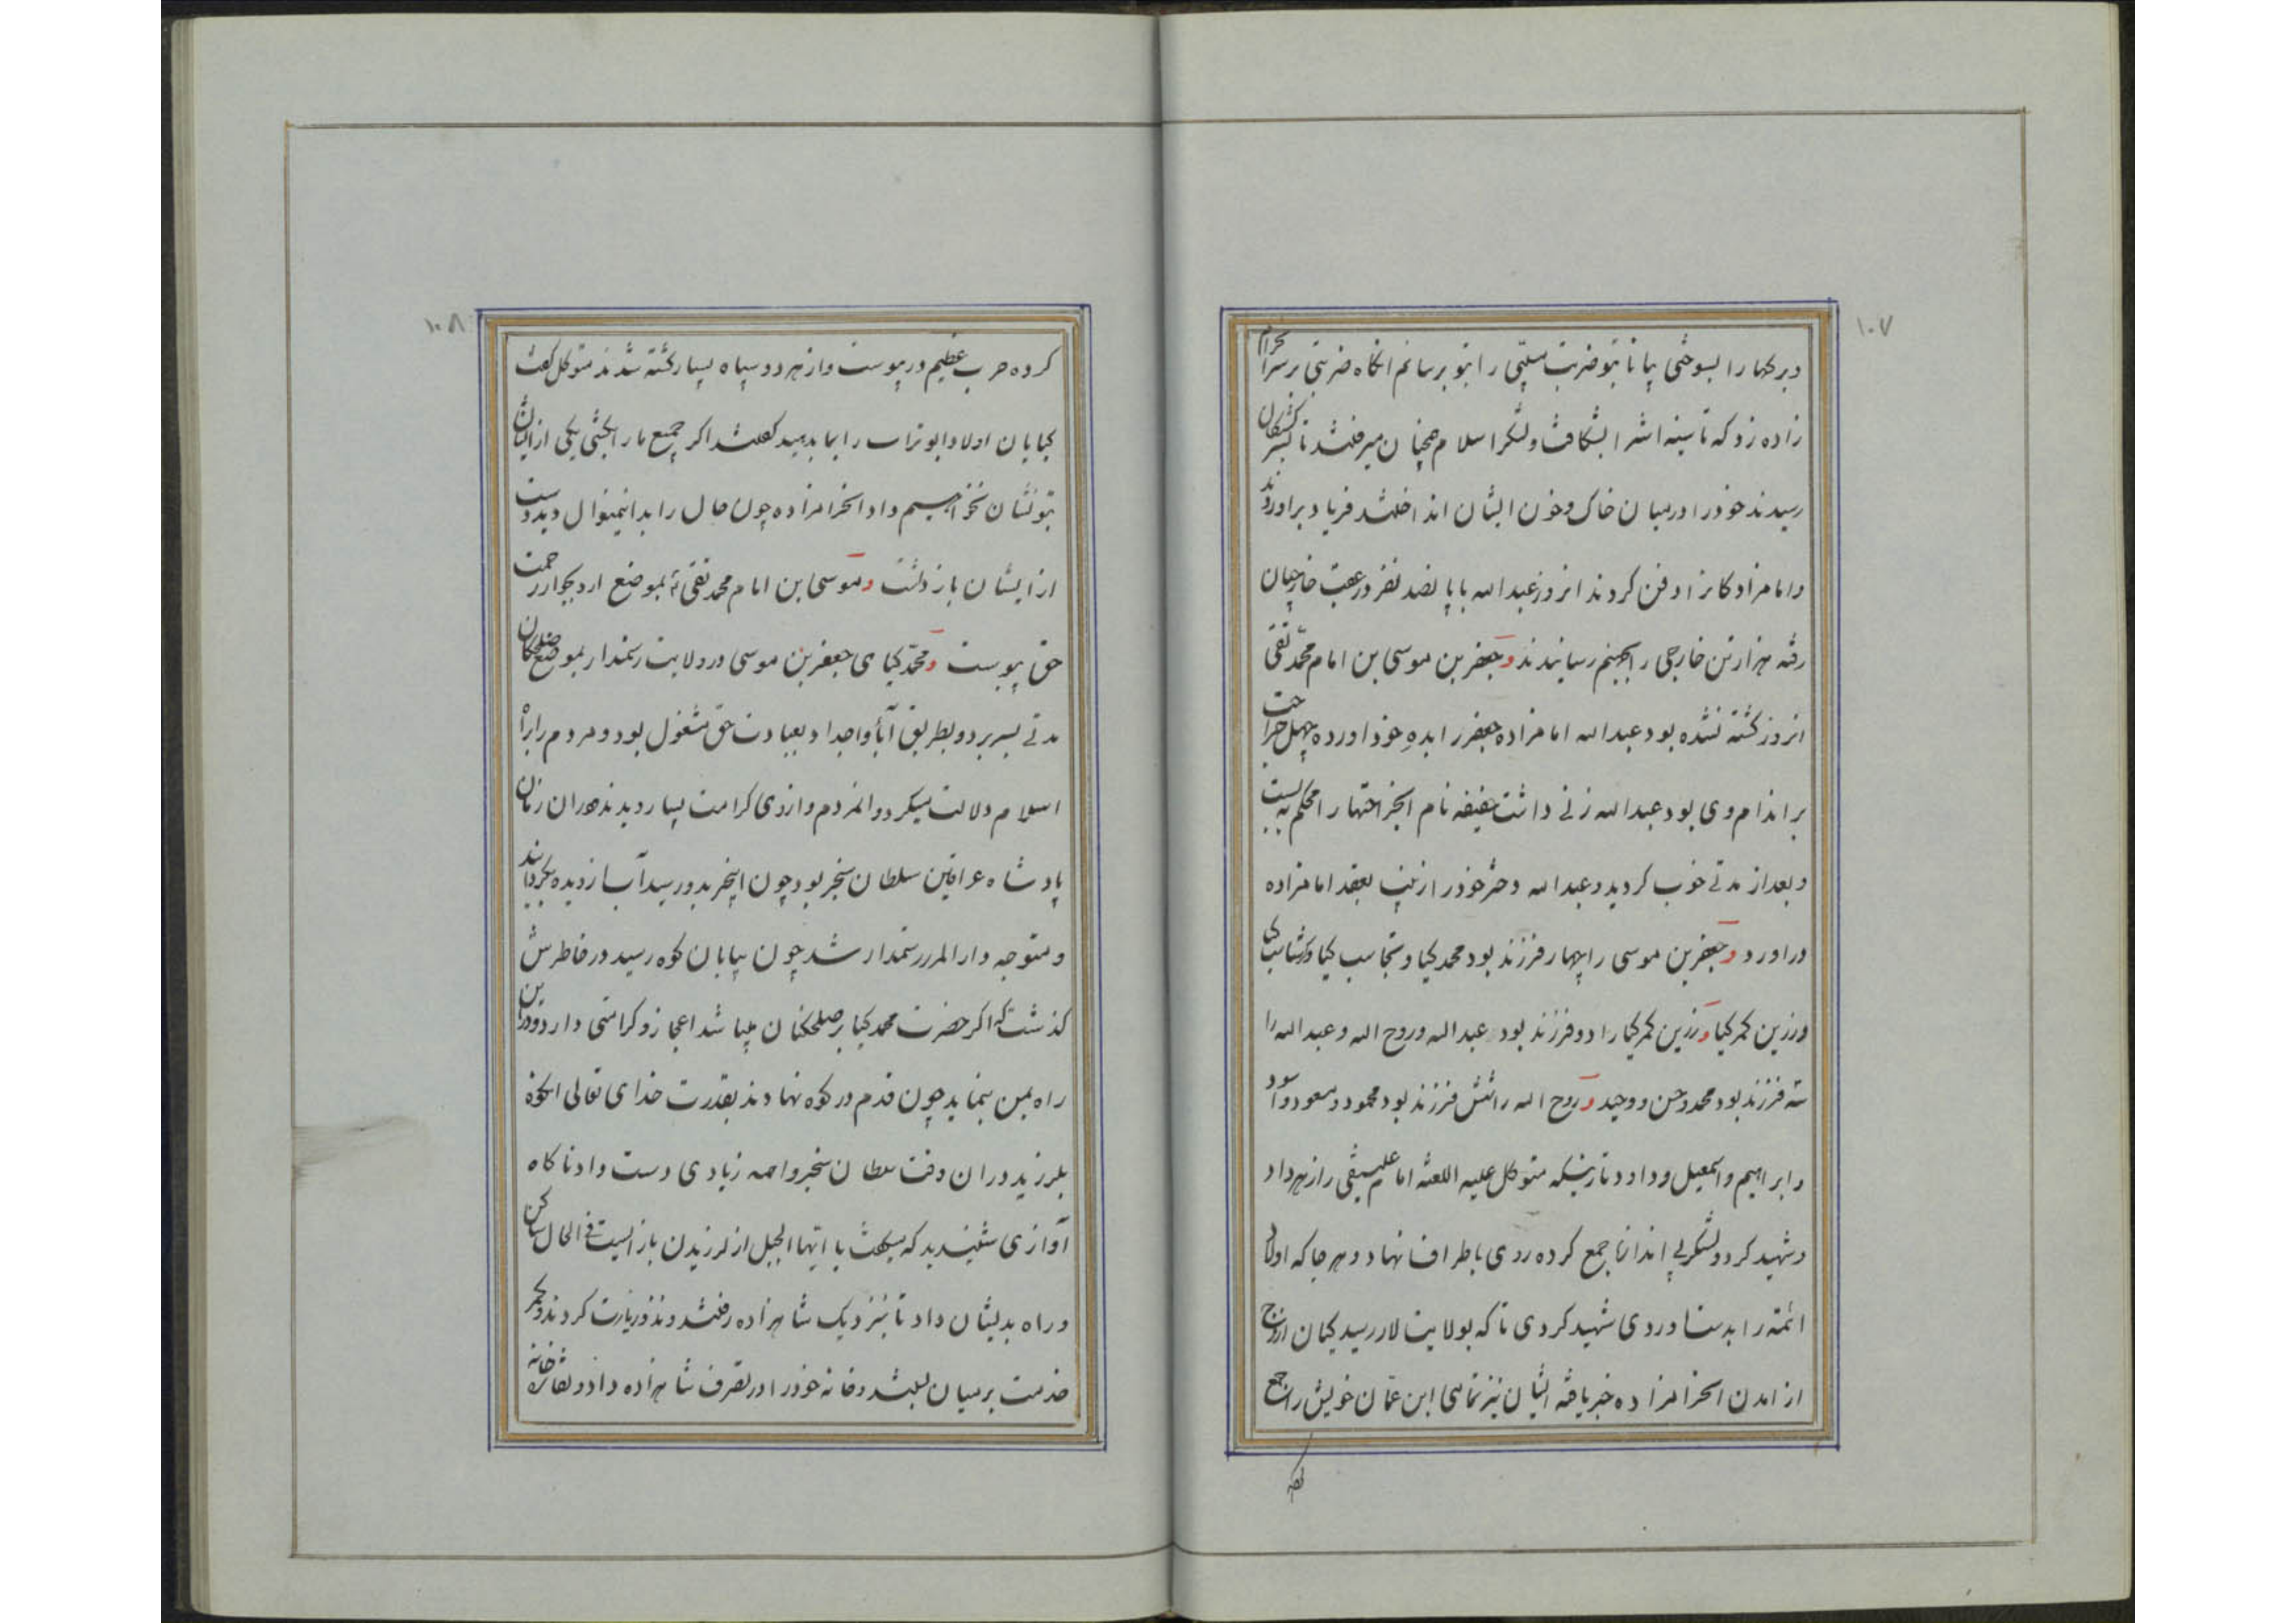 ۱۰۷
و برکها را بسوختی بیا تا بتو ضربت صلیبی را بتو برسانم انکاه ضربتی بر سر آنحرام
زاده زد که تا سینه اش را بشکافت و لشکر اسلام همچنان میرفتند تا بسر کشتکان
رسیدند خود را در میان خاک و خون ایشان انداختند فریاد براوردند
و امامزادکانرا دفن کردند انروز عبدالله با پانصد نفر در عقب خارجیان
رفته هزار تن خارجی را بجهنم رسانیدند و جعفر بن موسی بن امام محمد تقی
انروز کشته نشده بود عبدالله امامزاده جعفر را بده خود اورده چهل جراحت
بر اندام وی بود عبدالله زنی داشت عفیفه نام انجراحتها را محکم به بست
و بعد از مدتی خوب کردید و عبدالله دختر خود را زینب بعقد امامزاده
دراورد و جعفر بن موسی را چهار فرزند بود محمد کیا و تجاسب کیا و کرشاسب کیا
و زرین کمر کیا و زرین کمر کیا را دو فرزند بود عبدالله و روح الله و عبدالله را
سه فرزند بود محمد و حسن و وحید و روح الله را شش فرزند بود محمود و مسعود و اسود
و ابراهیم و اسمعیل و داود تا زینکه متوکل علیه اللعنه امام علینقی را زهر داد
و شهید کرد و لشکر بی اندازه جمع کرده روی باطراف نهاد و هر جا که اولاد
ائمه را بدست اوردی شهید کردی تا که بولایت لار رسید کیان ارجح
از امدن انحرامزاده خبر یافته ایشان نیز تمامی ابن عمان خویش را جمع
۱۰۸
کرده حرب عظیم در پیوست و از هر دو سپاه بسیار کشته شدند متوکل کفت
کیایان اولاد ابو تراب را بما بدهید کفتند اکر جمیع ما را بکشی یکی از ایشان
بتو نشان نخواهیم داد انحرامزاده چون حال را بدانمنوال دید دست
از ایشان بازداشت و موسی بن امام محمد تقی بموضع ارد بجوار رحمت
حق پیوست و محمد کیای جعفر بن موسی در ولایت رستمدار بموضع صلحکان
مدتی بسر برد و بطریق آبا و اجداد بعبادت حق مشغول بود و مردم را براه
اسلام دلالت میکرد و المردم از وی کرامت بسیار دیدند در ان زمان
پادشاه عراقین سلطان سنجر بود چون اینخبر بدو رسید آب از دیده بکردانید
و متوجه دارالمرز رستمدار شد چون بپایان کوه رسید در خاطرش
کذشت که اکر حضرت محمد کیا بر صلحکان میباشد اعجاز و کرامتی دارد و در این
راه بمن بنماید چون قدم در کوه نهادند بقدرت خدای تعالی انکوه
بلرزید در ان وقت سلطان سنجر واهمه زیادی دست داد ناکاه
آوازی شنیدید که میکفت یا ایها الجبل از لرزیدن باز ایست فی الحال ساکن
و راه بدیشان داد تا بنزدیک شاهزاده رفتند و نذر و زیارت کردند و کمر
خدمت بر میان بستند و خانه خود را در تصرف شاهزاده داد و نقاره خانه